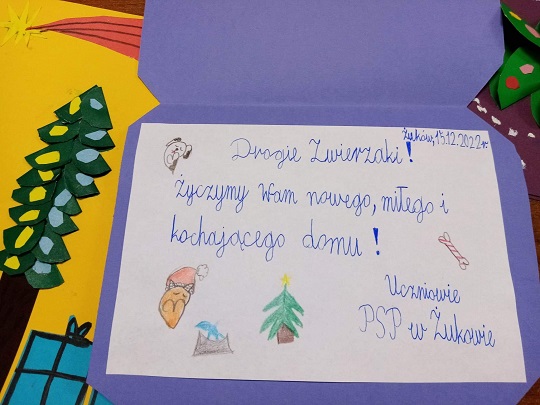 Żuków, 15.12.2022 r.
Drogie Zwierzaki!
życzymy Wam nowego, miłego i
kochającego domu!
Uczniowie
PSP w Żukowie